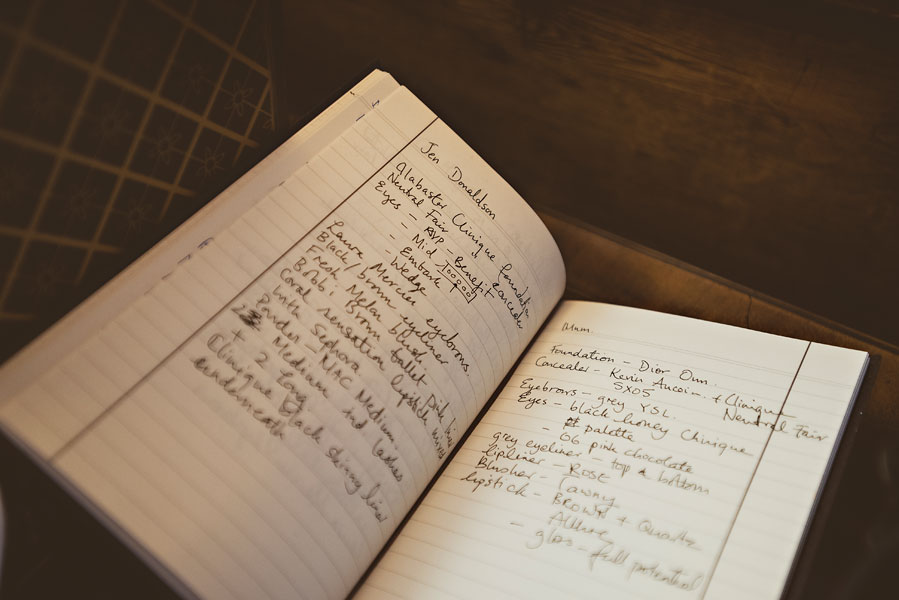 Jen Donaldson
Alabaster Clinique foundation
Neutral Fair - Benefit Conceale
Eyes - RVP
- Mid
- Embark
- Wedge
Laura Mercier eyebrows.
Black/brown eyeliner
Fresh Melon blusher
Bobbi Brown
Coral sensation toilet
Pink Sephora lipstick mixed
Powder - MAC Medium.
Medium ind lashes
+ 2 Long
Clinique black skinny liner
underneath
Mum.
Foundation - Dior Own.
Concealer - Kevin Aucoin. + Clinique
SX05 Neutral Fair
Eyebrows - grey YSL.
Eyes - black honey Clinique
palette
- 06 pink chocolate
grey eyeliner - top & bottom
lipliner - Rose
Blusher - Tawny
lipstick - BROWN + Quartz
Allure
- gloss - full potential